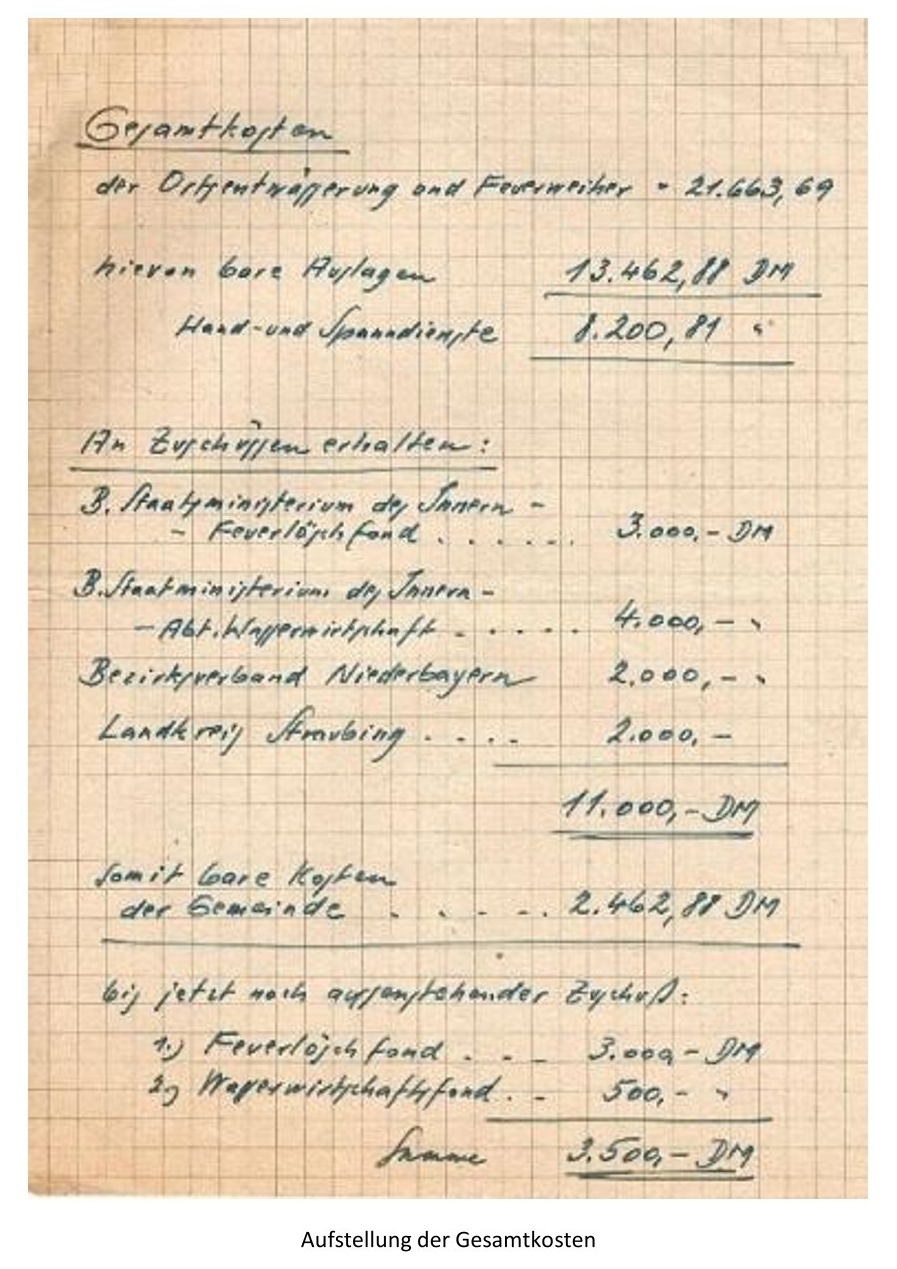 Gesamtkosten
der Ortsentwässerung und Feuerweiher = 21.663,69
hievon bare Auslagen 13.462,88 DM
Hand- und Spanndienste 8.200,81 "
An Zuschüssen erhalten:
B. Staatsministerium des Innern -
- Feuerlöschfond . . . . . . 3.000,- DM
B. Staatministerium des Innern -
- Abt. Wasserwirtschaft . . . . . 4.000,- "
Bezirksverband Niederbayern 2.000,- "
Landkreis Straubing . . . . 2.000,-
11.000,- DM
somit bare Kosten
der Gemeinde . . . . . 2.462,88 DM
bis jetzt noch aussenstehender Zuschuß:
1.) Feuerlöschfond . . . 3.000,- DM
2.) Wasserwirtschaftsfond . . 500,- "
Summe 3.500,- DM
Aufstellung der Gesamtkosten